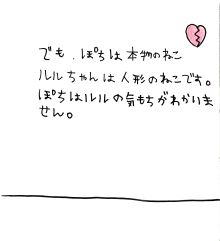 でも、ぽちは本物のねこ
ルルちゃんは人形のねこです。
ぽちはルルの気もちがわかいま
せん。